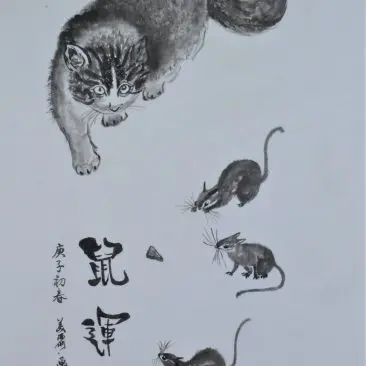 鼠運
庚子初春 美